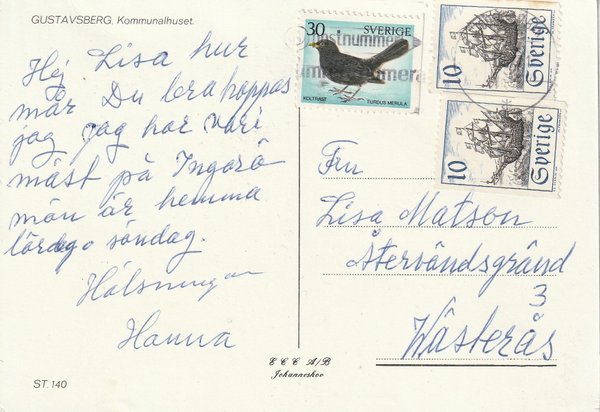 GUSTAVSBERG, Kommunalhuset.
Hej Lisa hur
mår Du bra hoppas
jag jag har vari
mäst på Ingarö
män är hemma
lördag o söndag.
Hälsningar
Hanna
ST. 140
30
SVERIGE
KOLTRAST
TURDUS MERULA
postnummer
10
Sverige
10
Sverige
Fru
Lisa Matson
Återvändsgränd
3
Wästerås
E C C A/B
Johanneshov